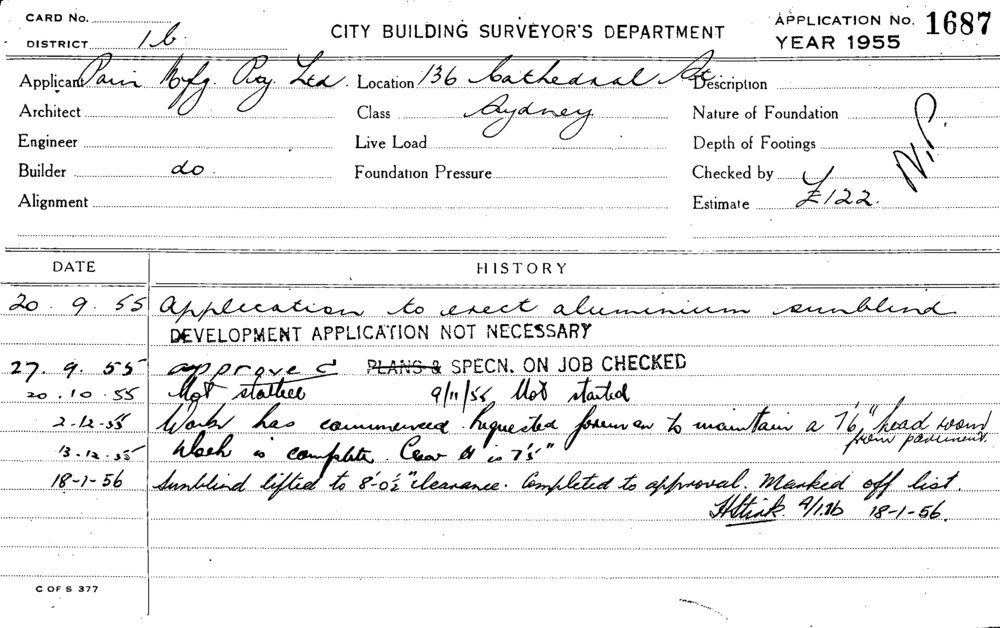 CARD No.
CITY BUILDING SURVEYOR'S DEPARTMENT
APPLICATION No. 1687
DISTRICT 1b
YEAR 1955
Applicant Mfg. Pty Ltd. Location 136 Cathedral St. Description
Architect Class Sydney Nature of Foundation
Engineer Live Load Depth of Footings
N.P.
Builder do. Foundation Pressure Checked by
Alignment Estimate £122.
DATE HISTORY
20. 9. 55 Application to erect aluminium sunblind
DEVELOPMENT APPLICATION NOT NECESSARY
27. 9. 55 approved PLANS & SPECN. ON JOB CHECKED
20. 10. 55 Not started 9/11/55 Not started
2-12-55 Work has commenced. Requested foreman to maintain a 7'6" head room
from pavement.
13-12-55 Work is complete. Clear is 7'5"
18-1-56 Sunblind lifted to 8'-0½" clearance. Completed to approval. Marked off list.
18-1-56.
C OF S 377